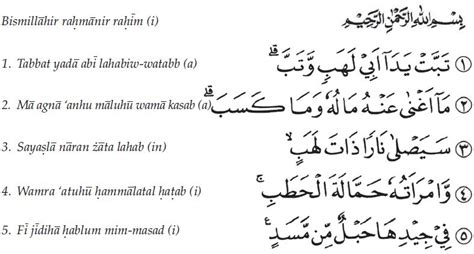 Bismillāhir raḥmānir raḥīm (i) بِسْمِ اللهِ الرَّحْمٰنِ الرَّحِيْمِ
1. Tabbat yadā abī lahabiw-watabb (a) ① تَبَّتْ يَدَآ اَبِيْ لَهَبٍ وَّتَبَّۗ
2. Mā agnā ‘anhu māluhū wamā kasab (a) ② مَآ اَغْنٰى عَنْهُ مَالُهٗ وَمَا كَسَبَۗ
3. Sayaṣlā nāran żāta lahab (in) ③ سَيَصْلٰى نَارًا ذَاتَ لَهَبٍۙ
4. Wamra ‘atuhū ḥammālatal ḥaṭab (i) ④ وَّامْرَاَتُهٗ حَمَّالَةَ الْحَطَبِۚ
5. Fī jīdihā ḥablum mim-masad (i) ⑤ فِيْ جِيْدِهَا حَبْلٌ مِّنْ مَّسَدٍۚ